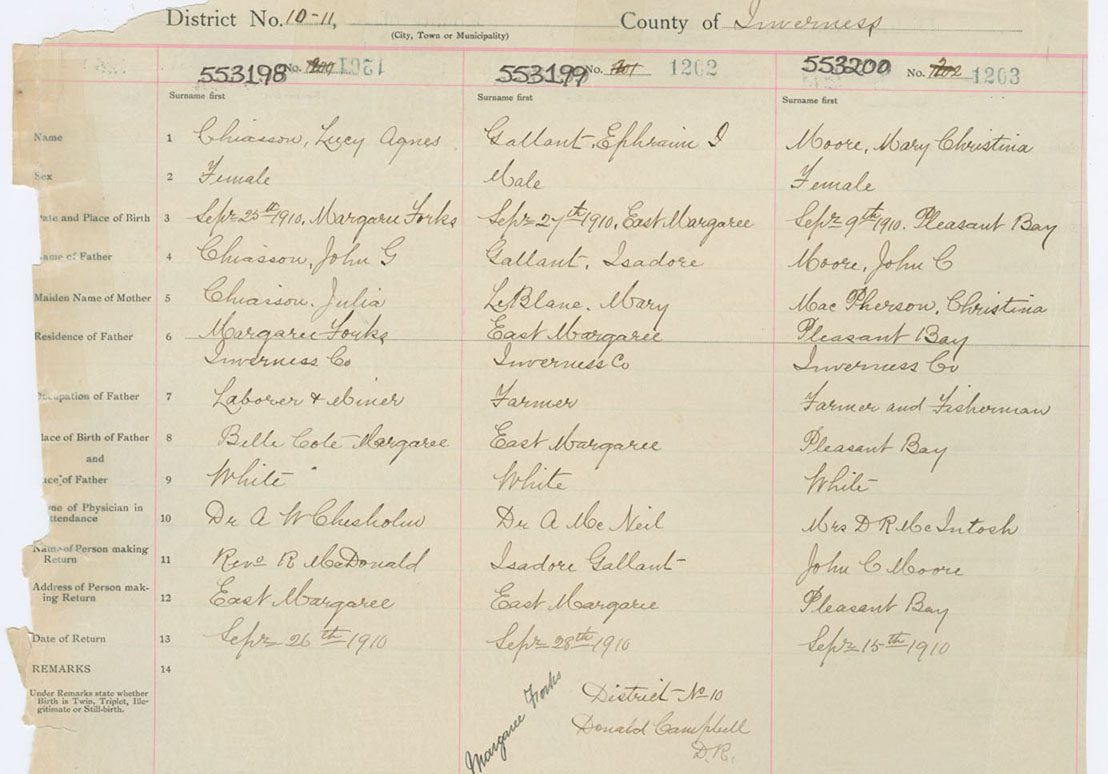 District No. 10-11, County of Inverness
(City, Town or Municipality)
553198 No. 1201 553199 No. 201 1202 553200 No. 202 1203
Surname first Surname first Surname first
Name 1 Chiasson, Lucy Agnes Gallant, Ephraim I Moore, Mary Christina
Sex 2 Female Male Female
Date and Place of Birth 3 Sepr 25th 1910, Margaree Forks Sepr 27th 1910, East Margaree Sepr 9th 1910. Pleasant Bay
ame of Father 4 Chiasson, John G Gallant, Isadore Moore, John C
Maiden Name of Mother 5 Chiasson, Julia LeBlanc, Mary Mac Pherson, Christina
Residence of Father 6 Margaree Forks East Margaree Pleasant Bay
Inverness Co Inverness Co Inverness Co
Occupation of Father 7 Laborer & Miner Farmer Farmer and Fisherman
lace of Birth of Father 8 Belle Cote Margaree East Margaree Pleasant Bay
and
ace of Father 9 White White White
me of Physician in
ttendance 10 Dr A W Chesholm Dr A McNeil Mrs D R McIntosh
Name of Person making
Return 11 Revd R McDonald Isadore Gallant John C Moore
Address of Person mak-
ing Return 12 East Margaree East Margaree Pleasant Bay
Date of Return 13 Sepr 26th 1910 Sepr 28th 1910 Sepr 15th 1910
REMARKS 14
Under Remarks state whether
Birth is Twin, Triplet, Ille-
gitimate or Still-birth.
Margaree Forks
District No 10
Donald Campbell
D.R.